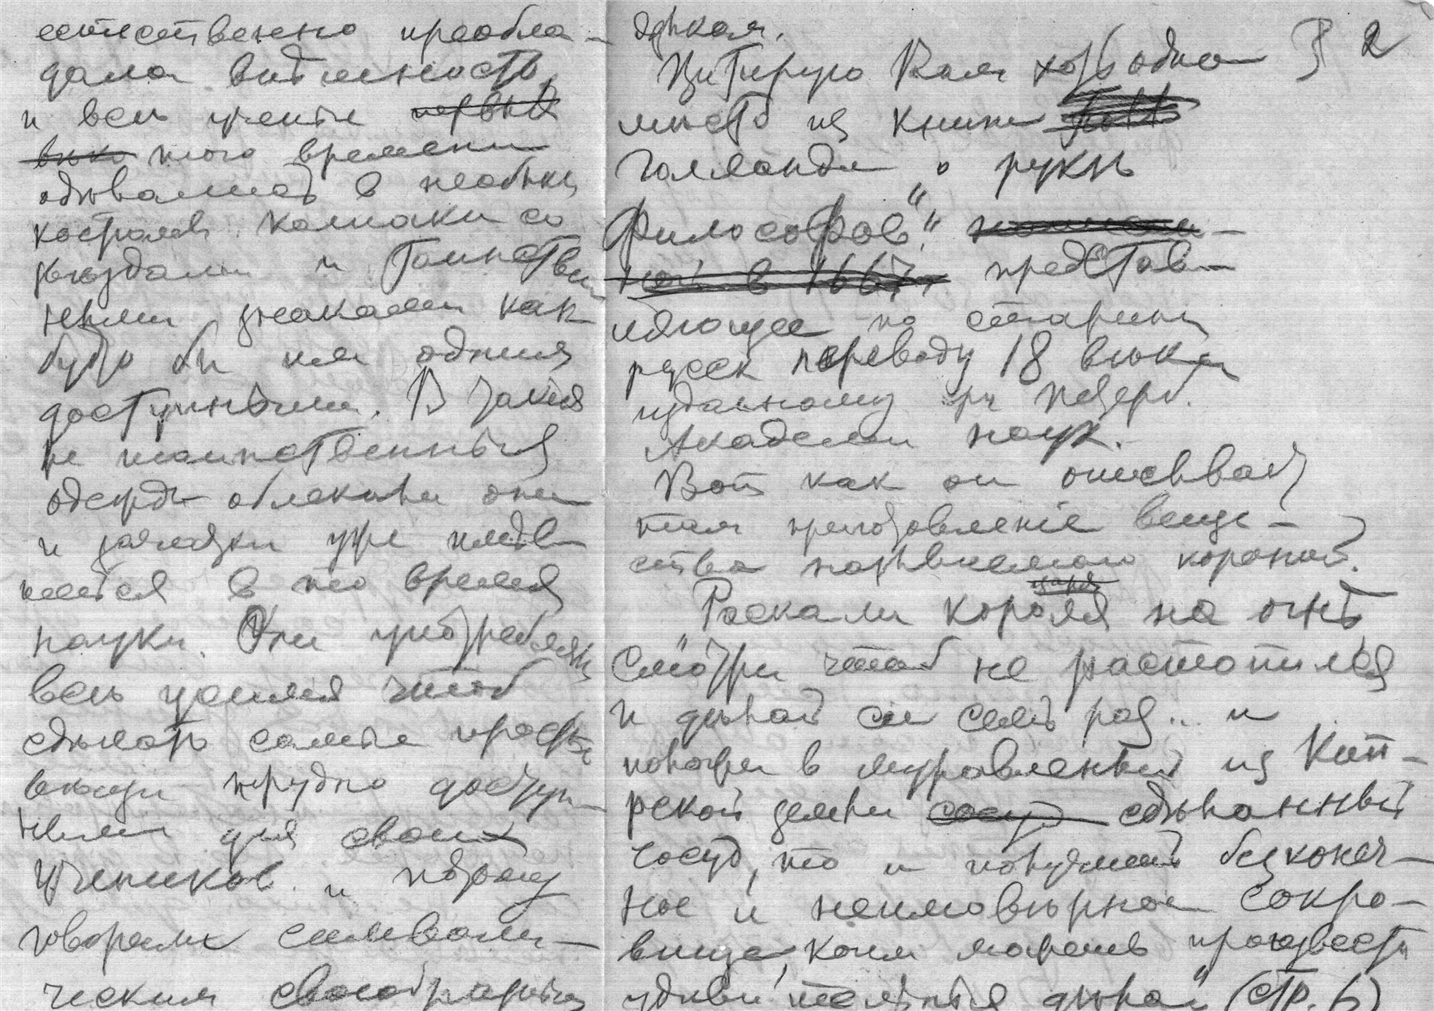 естественно преобла-
дала видимость
и все ученые первых
веков того времени
одевались в необыч
костюмы колпаки со
звездами и таинствен
ными знаками как
будто бы им одним
доступными. В такия
же таинственныя
одежды облекали они
и зачатки уже имев-
шейся в то время
науки. Они употребляли
все усилия чтоб
сделать самые простые
вещи трудно доступ-
ными для своих
учеников и потому
говорили символи-
ческим своеобразным
языком.
Цитирую Вам хоть одно 2
место из книги
Голланда о руке
философов", "
ной в 1667, представ-
ляющее по старин
русск переводу 18 века
изданному при Петерб.
Академии наук.
Вот как он описывает
там приготовление веще-
ства называемого короной.
царя
"Раскали короля на огне,
смотри чтоб не растопился
и делай сие семь раз... и
положи в муравленый из Кип-
рской земли сосуд сделанный
сосуд, то и получишь безконеч-
ное и неимоверное сокро-
вище, коим можешь произвести
удивительныя дела" (стр. 6)